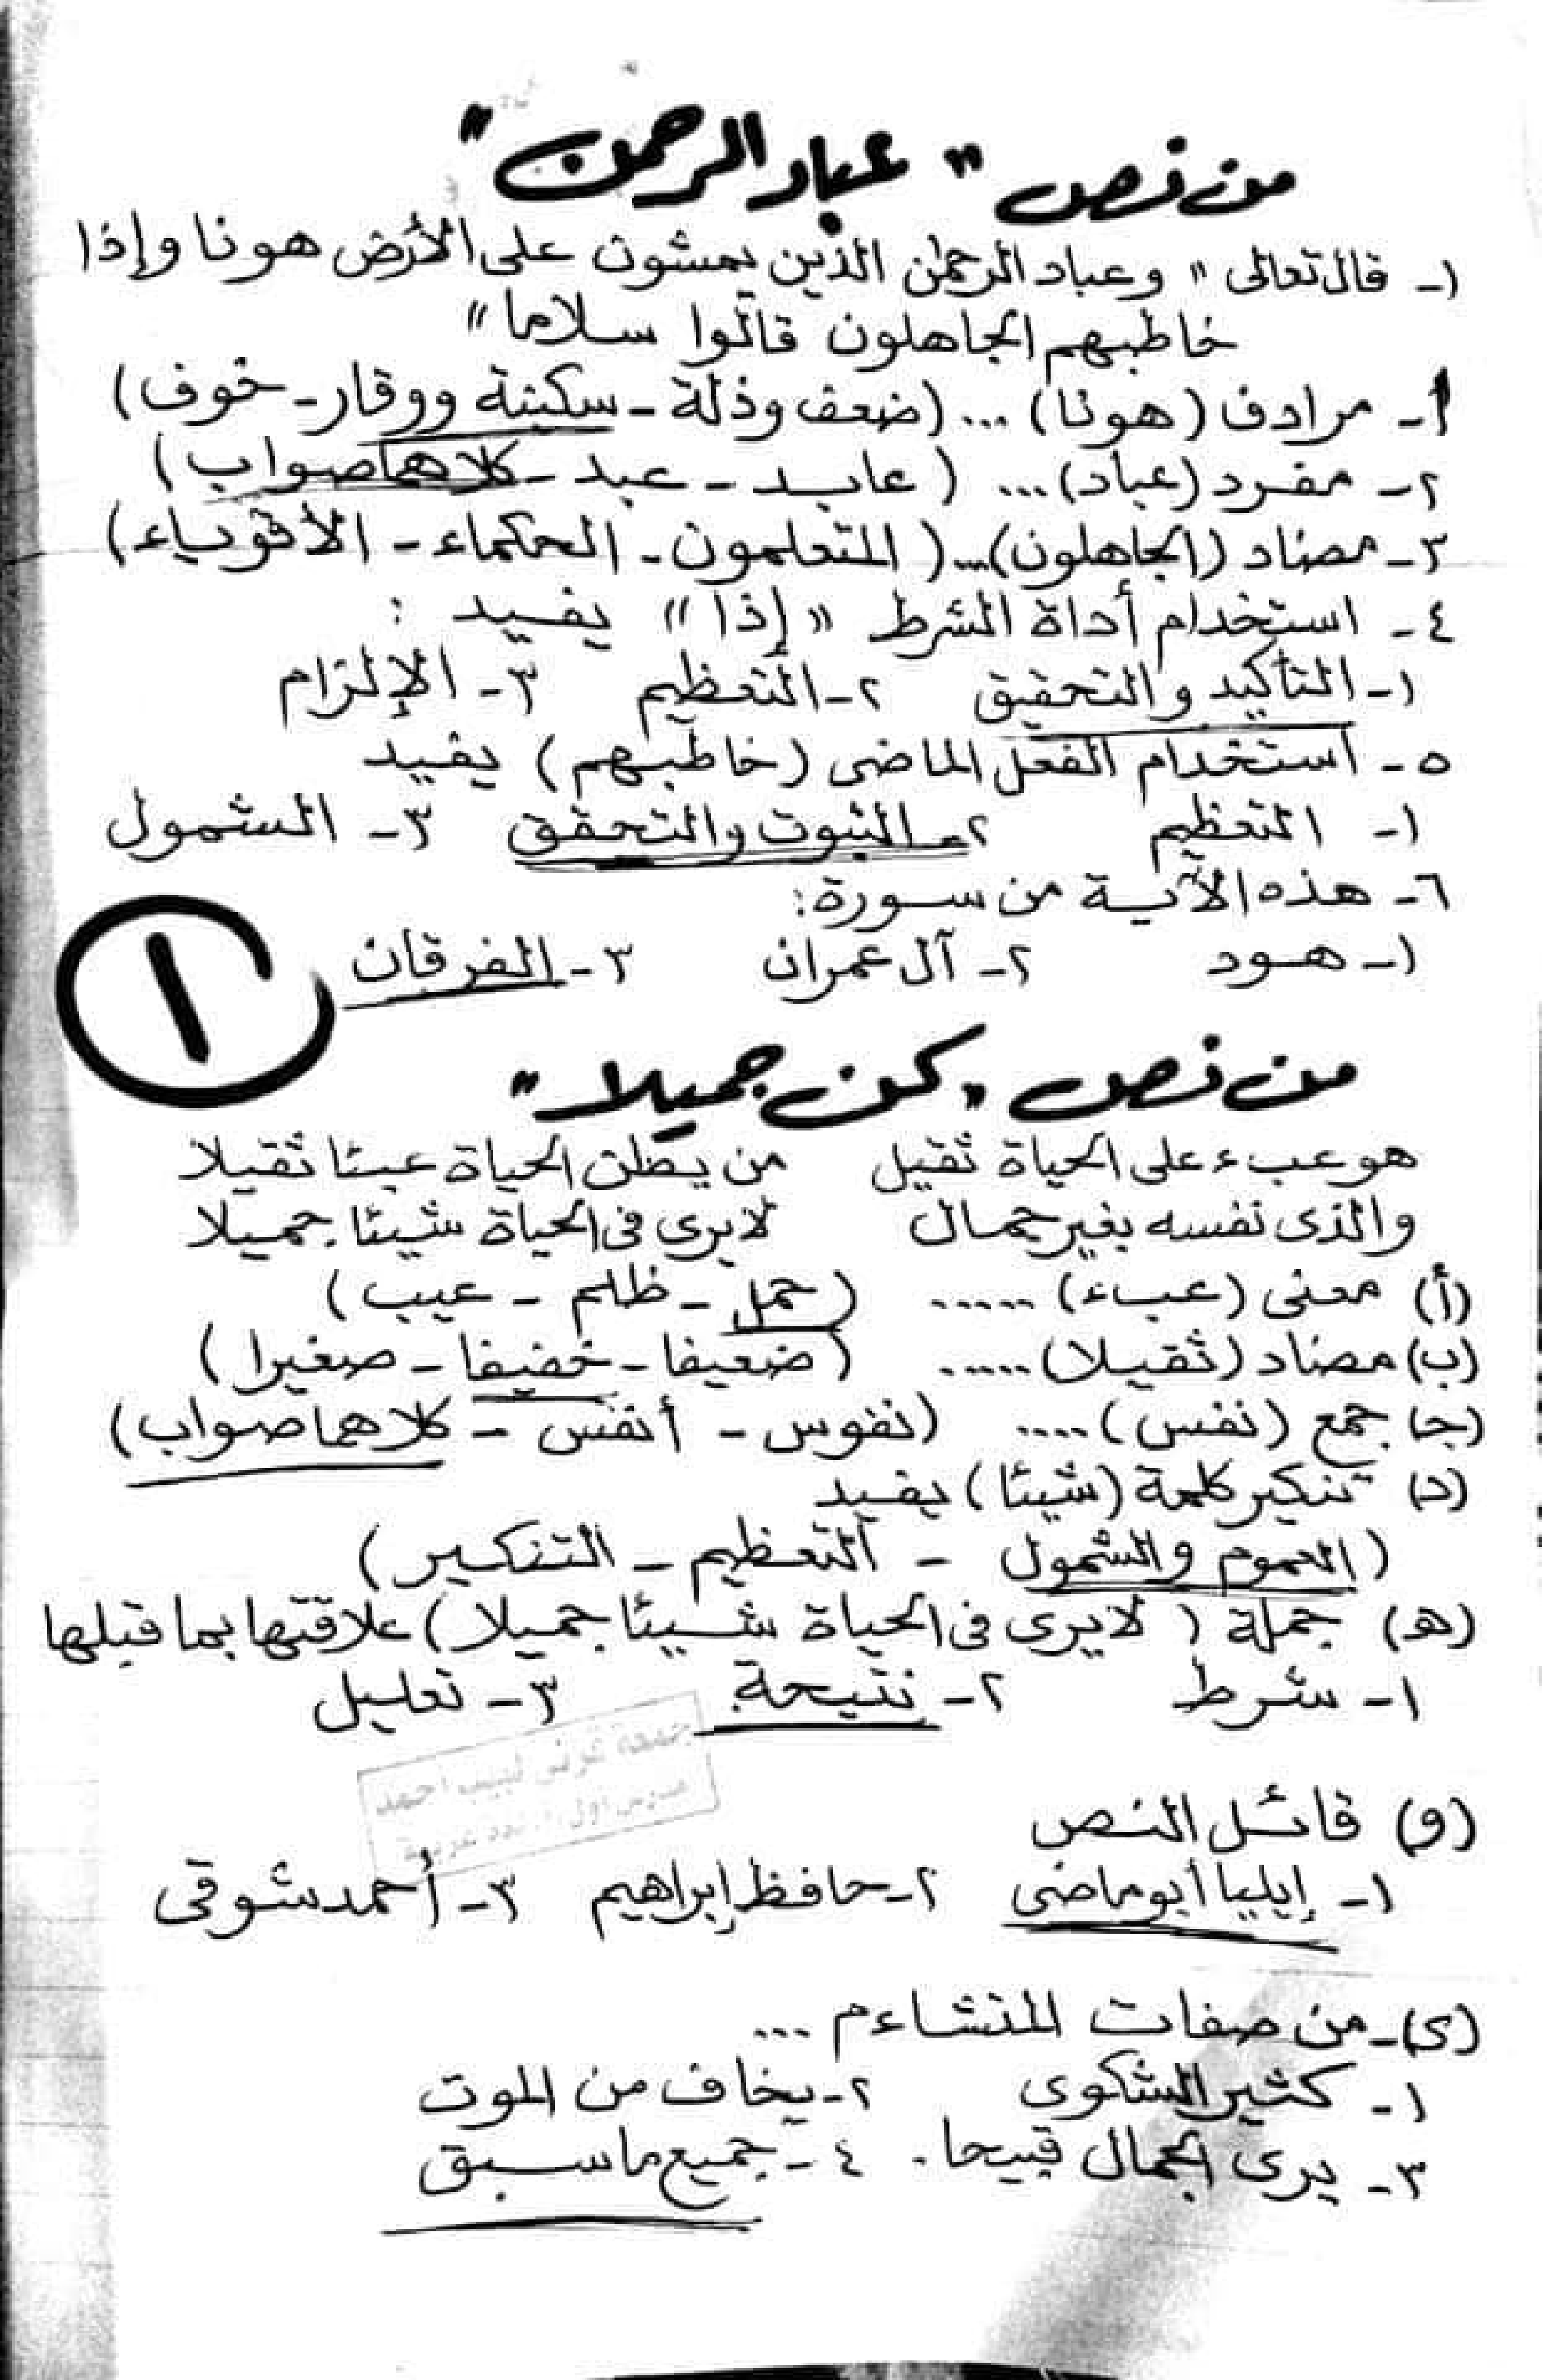 من نص " عباد الرحمن "
١- قال تعالى " وعباد الرحمن الذين يمشون على الأرض هونا وإذا
خاطبهم الجاهلون قالوا سلاما "
١- مرادف (هونا) ... (ضعف وذلة - سكينة ووقار - خوف)
٢- مفرد (عباد) ... (عابد - عبد - كلاهما صواب)
٣- مضاد (الجاهلون) ... (المتعلمون - الحكماء - الأقوياء)
٤- استخدام أداة الشرط " إذا " يفيد :
١- التأكيد والتحقيق ٢- التعظيم ٣- الإلزام
٥- استخدام الفعل الماضى (خاطبهم) يفيد
١- التعظيم ٢- الثبوت والتحقق ٣- الشمول
٦- هذه الآية من سورة :
١- هود ٢- آل عمران ٣- الفرقان
١
من نص " كن جميلا "
هو عبء على الحياة ثقيل من يظن الحياة عبئا ثقيلا
والذى نفسه بغير جمال لا يرى فى الحياة شيئا جميلا
(أ) معنى (عبء) ...... (حمل - ظلم - عيب)
(ب) مضاد (ثقيلا) ..... (ضعيفا - خفيفا - صغيرا)
(جـ) جمع (نفس) .... (نفوس - أنفس - كلاهما صواب)
(د) تنكير كلمة (شيئا) يفيد
(العموم والشمول - التعظيم - التنكير)
(هـ) جملة (لا يرى فى الحياة شيئا جميلا) علاقتها بما قبلها
١- شرط ٢- نتيحة ٣- تعليل
احمد
(و) قائل النص
١- إيليا أبو ماضى ٢- حافظ إبراهيم ٣- أحمد شوقى
(ى) - من صفات المتشاءم ...
١- كثير الشكوى ٢- يخاف من الموت
٣- يرى الجمال قبيحا . ٤- جميع ما سبق